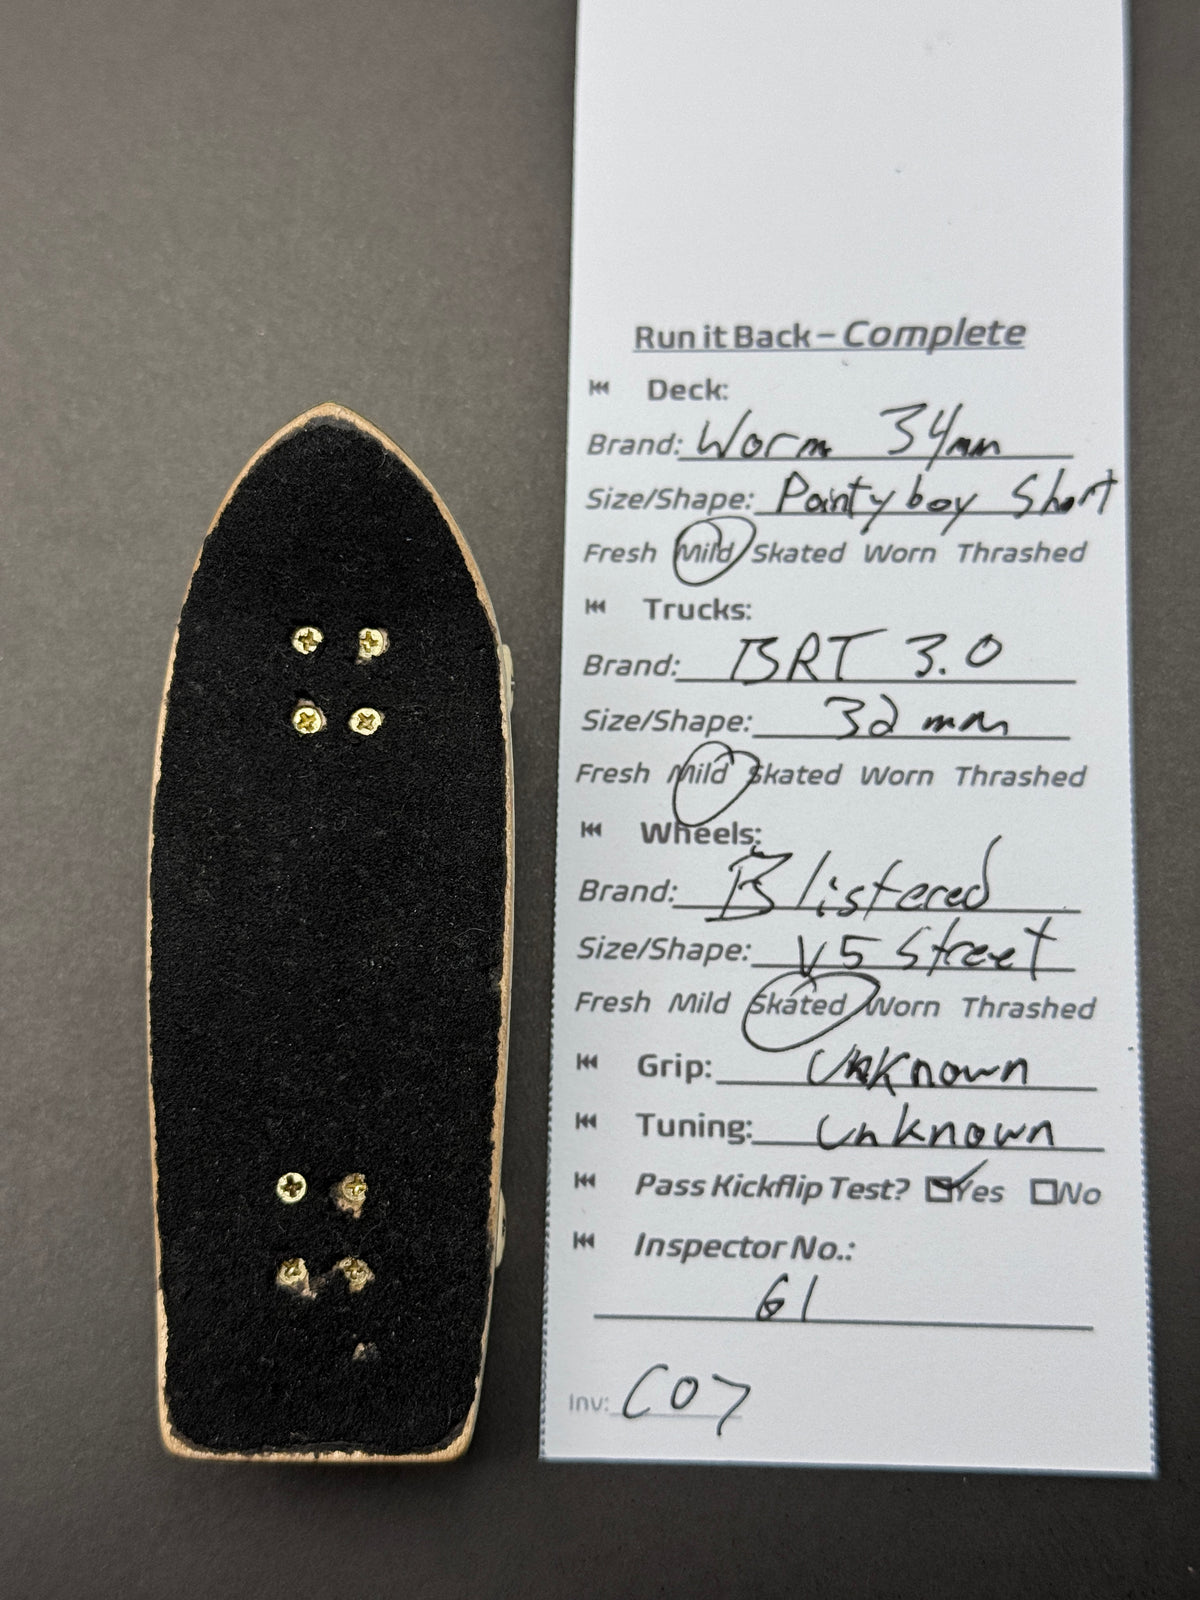 Run it Back – Complete
Deck:
Brand: Worm 34mm
Size/Shape: Pointy boy Short
Fresh Mild Skated Worn Thrashed
Trucks:
Brand: BRT 3.0
Size/Shape: 32 mm
Fresh Mild Skated Worn Thrashed
Wheels:
Brand: Blistered
Size/Shape: V5 Street
Fresh Mild Skated Worn Thrashed
Grip: Unknown
Tuning: Unknown
Pass Kickflip Test? Yes No
Inspector No.:
61
Inv: C07